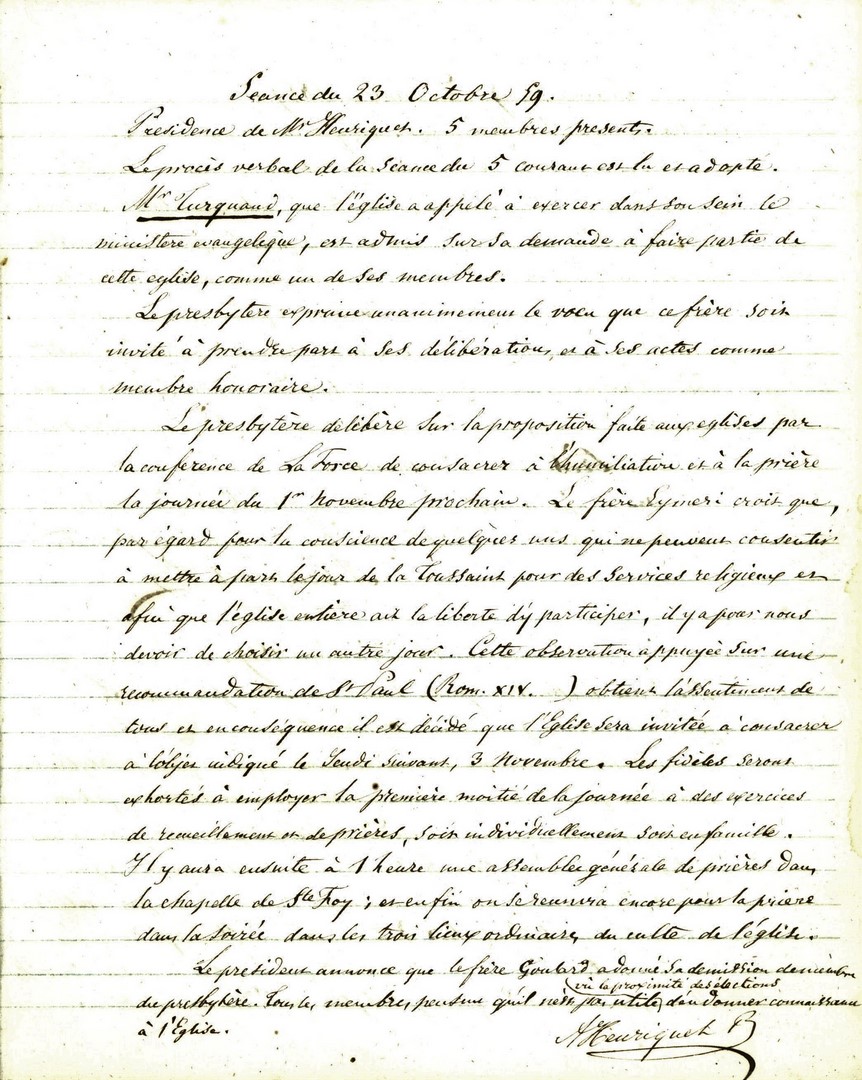 Séance du 23 Octobre 59.
Présidence de Mr Henriquet. 5 membres presents.
Le procès verbal de la Séance du 5 courant est lu et adopté.
Mr Turquand, que l'église a appelé à exercer dans son sein le
ministère evangelique, est admis sur sa demande à faire partie de
cette eglise, comme un de ses membres.
Le presbytere exprime unanimement le voeu que ce frère soit
invité à prendre part à ses délibérations et à ses actes comme
membre honoraire.
Le presbytère délibère sur la proposition faite aux eglises par
la conference de La Force de consacrer à l'humiliation et à la prière
la journée du 1er Novembre prochain. Le frère Eymeri croit que,
par égard pour la conscience de quelques uns qui ne peuvent consentir
à mettre à part le jour de la Toussaint pour des services religieux et
afin que l'église entière ait la liberte d'y participer, il y a pour nous
devoir de choisir un autre jour. Cette observation appuyée sur une
recommandation de St Paul (Rom. XIV. ) obtient l'assentiment de
tous et en conséquence il est décidé que l'Eglise sera invitée à consacrer
à l'objet indiqué le Jeudi suivant, 3 Novembre. Les fidèles seront
exhortés à employer la première moitié de la journée à des exercices
de recueillement et de prières, soit individuellement soit en famille.
Il y aura ensuite à 1 heure une assemblée générale de prières dans
la chapelle de Ste Foy ; et enfin on se reunira encore pour la prière
dans la soirée dans les trois lieux ordinaires du culte de l'église.
Le president annonce que le frère Goulard a donné sa demission de membre
vu la proximité des élections
du presbytère. Tous les membres pensent qu'il n'est pas utile d'en donner connaissance
à l'Eglise.
A Henriquet P